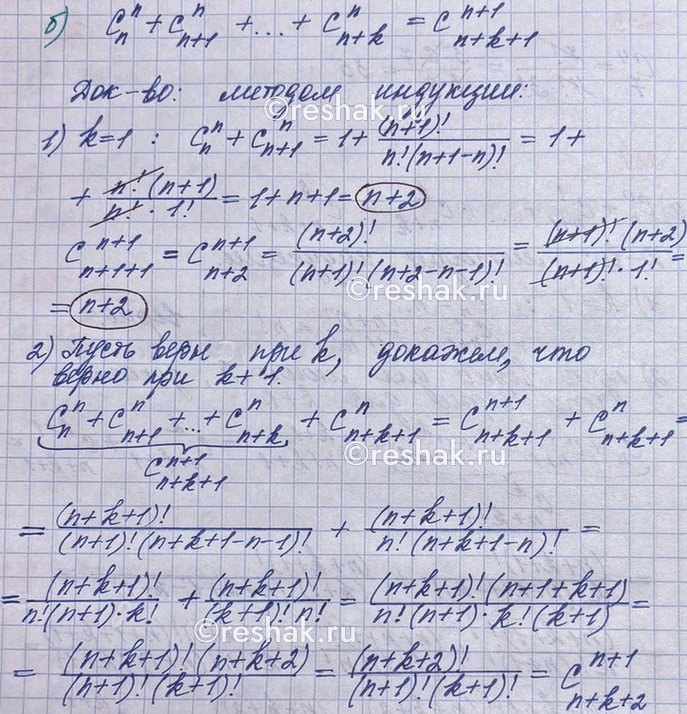 б) C_n^n + C_{n+1}^n + ... + C_{n+k}^n = C_{n+k+1}^{n+1}
Док-во: методом индукции:
©reshak.ru
1) k=1 : C_n^n + C_{n+1}^n = 1 + (n+1)!/(n!(n+1-n)!) = 1 +
+ n!(n+1)/(n! · 1!) = 1 + n + 1 = n+2
C_{n+1+1}^{n+1} = C_{n+2}^{n+1} = (n+2)!/((n+1)!(n+2-n-1)!) = (n+1)!(n+2)/((n+1)! · 1!) =
©reshak.ru
= n+2
2) Пусть верн при k, докажем, что
верно при k+1.
C_n^n + C_{n+1}^n + ... + C_{n+k}^n + C_{n+k+1}^n = C_{n+k+1}^{n+1} + C_{n+k+1}^n =
C_{n+k+1}^{n+1}
©reshak.ru
= (n+k+1)!/((n+1)!(n+k+1-n-1)!) + (n+k+1)!/(n!(n+k+1-n)!) =
= (n+k+1)!/(n!(n+1)·k!) + (n+k+1)!/((k+1)!n!) = (n+k+1)!(n+1+k+1)/(n!(n+1)·k!(k+1)) =
©reshak.ru
= (n+k+1)!(n+k+2)/((n+1)!(k+1)!) = (n+k+2)!/((n+1)!(k+1)!) = C_{n+k+2}^{n+1}